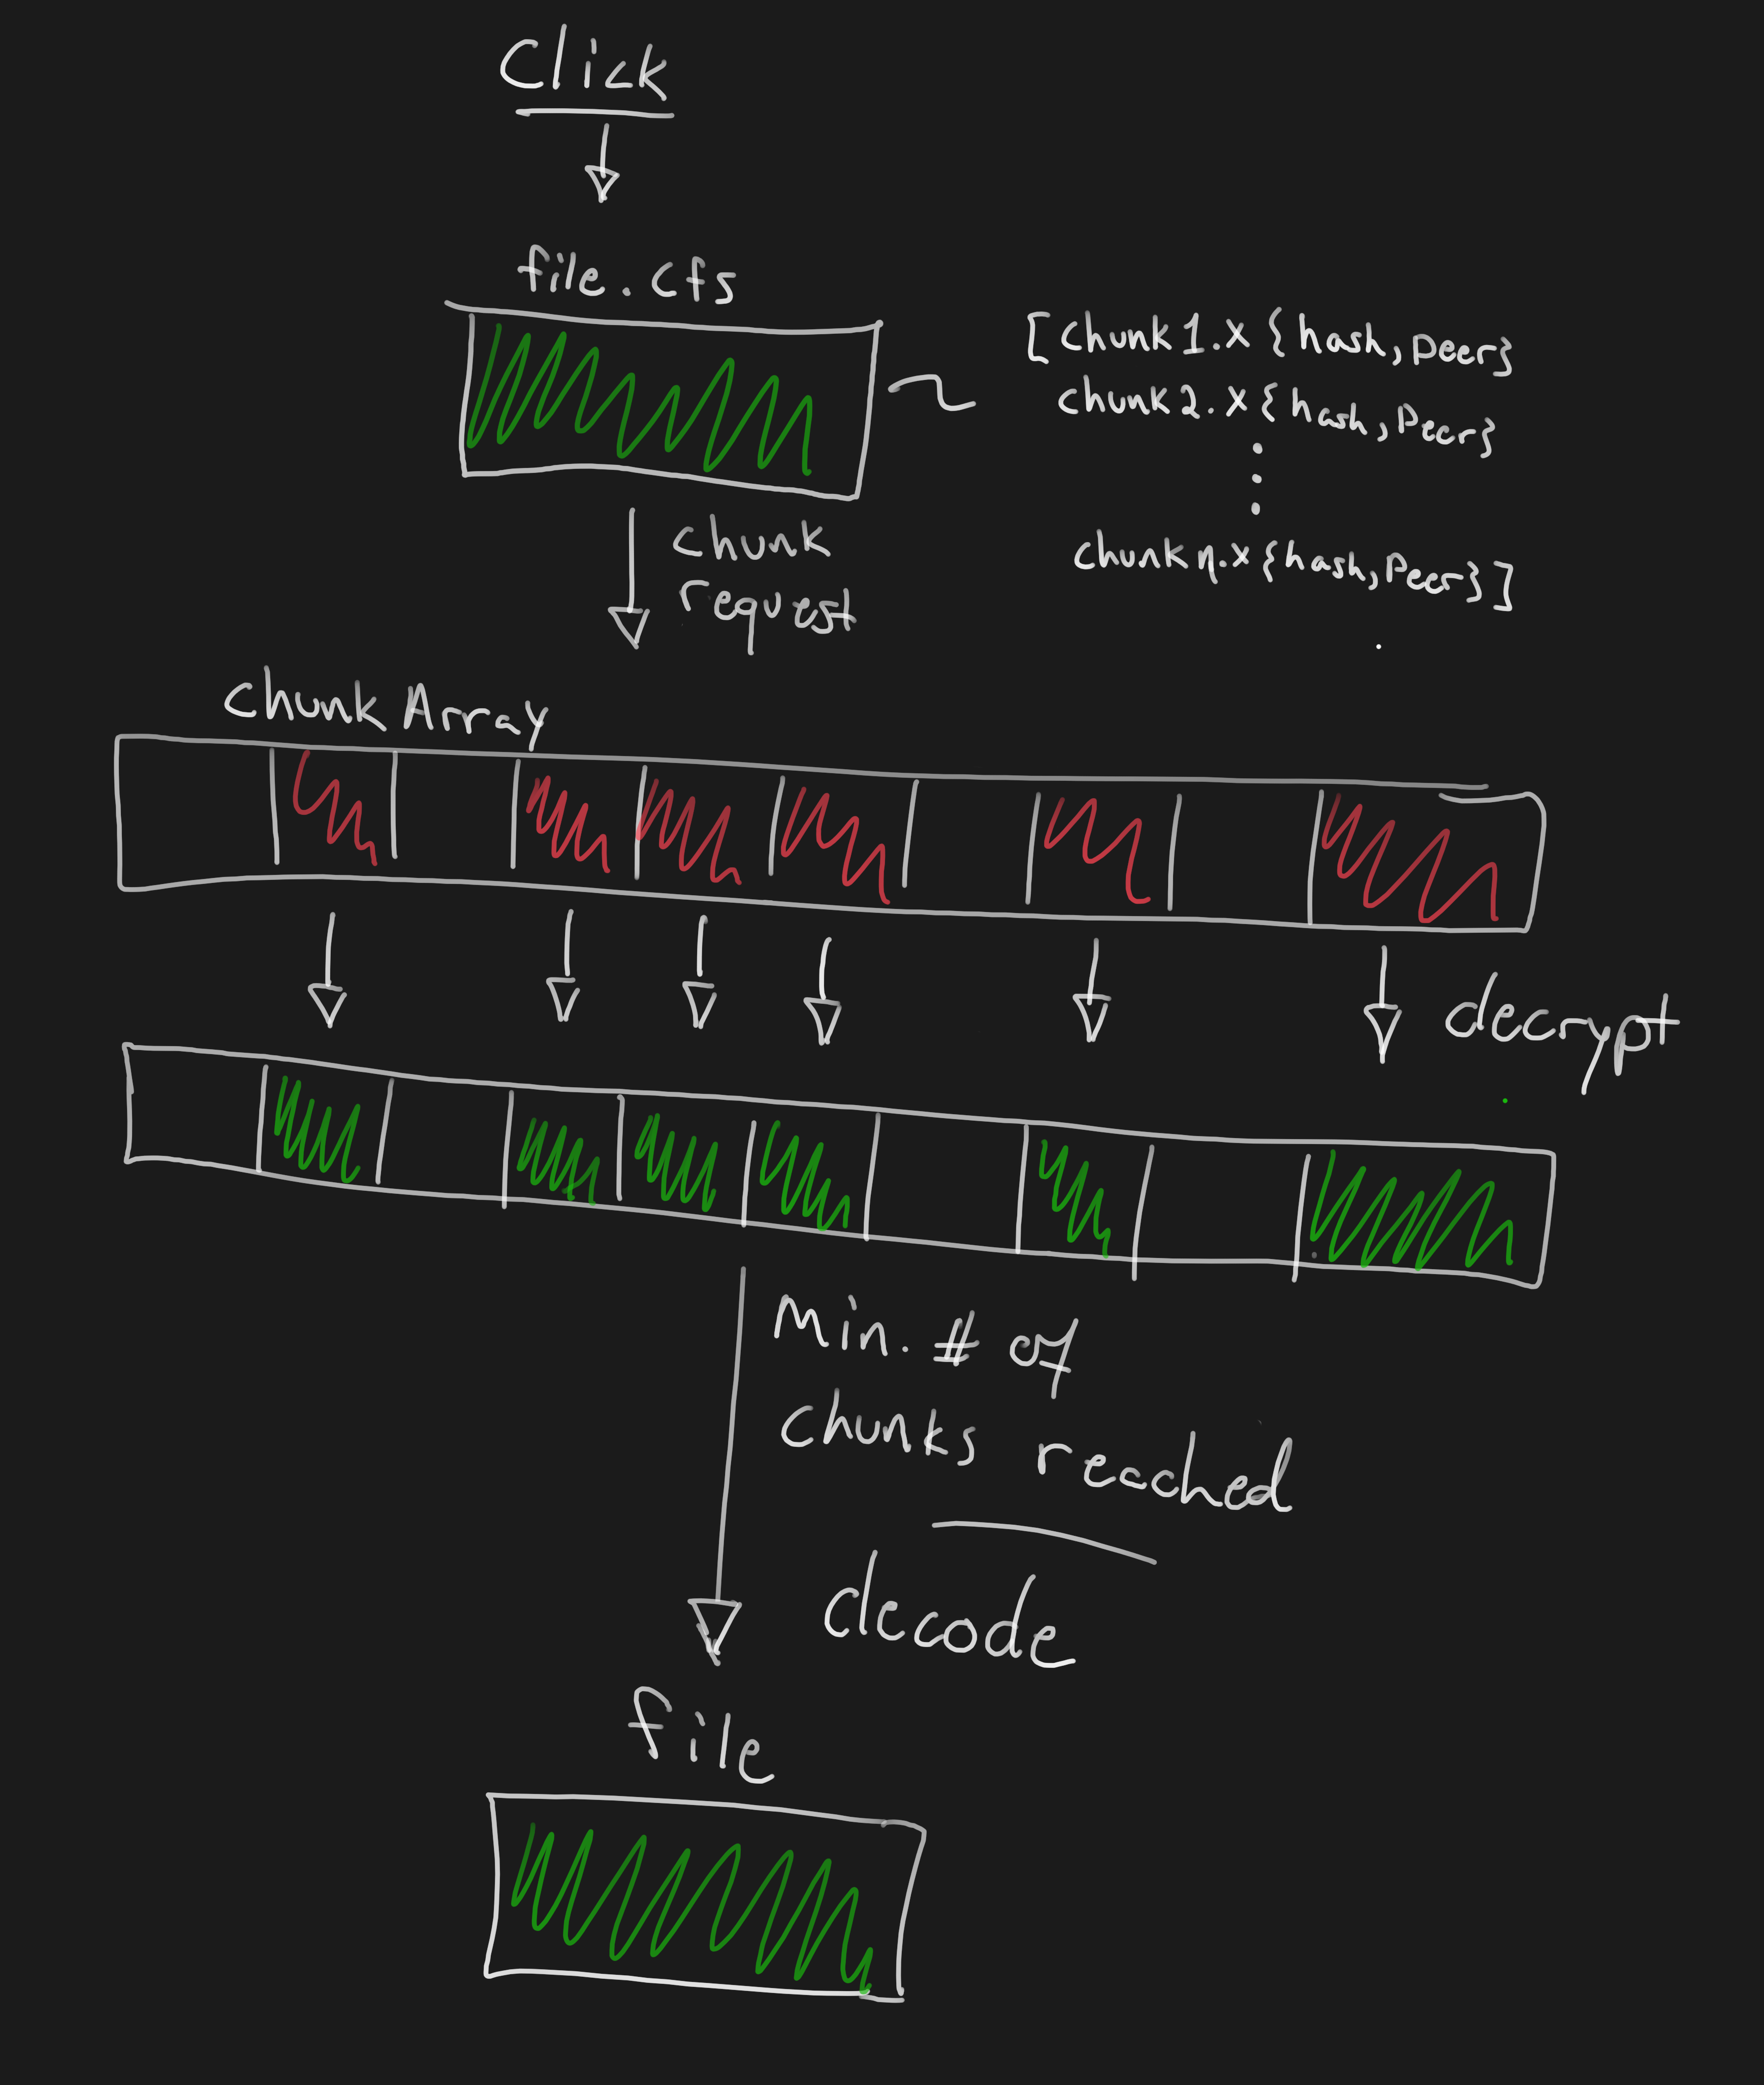 Click
file.cfs
[chunk1.x{hash,peer}
chunk2.x{hash,peer}
chunkn.x{hash,peer}]
chunk
request
Chunk Array
decrypt
Min. # of
Chunks reached
decode
file